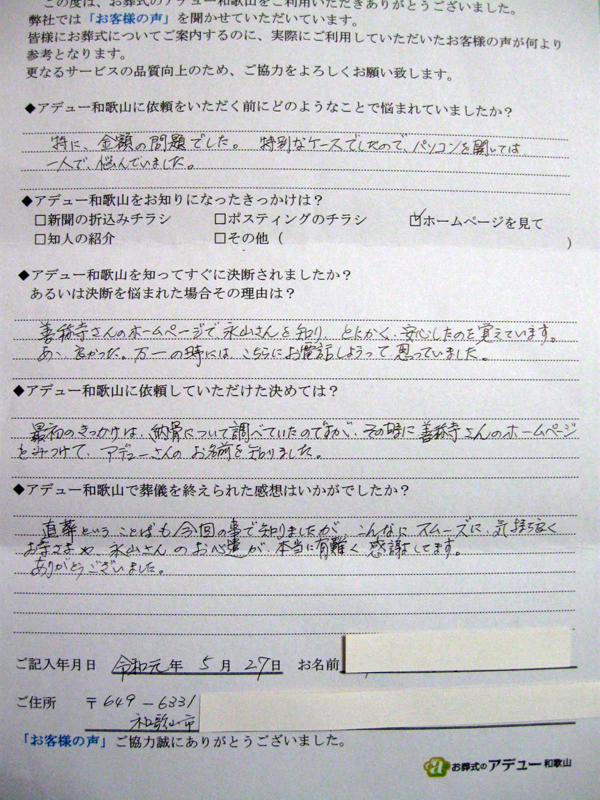 この度は、お葬式のアデュー和歌山をご利用いただきありがとうございました。
弊社では「お客様の声」を聞かせていただいています。
皆様にお葬式についてご案内するのに、実際にご利用していただいたお客様の声が何より
参考となります。
更なるサービスの品質向上のため、ご協力をよろしくお願い致します。
◆アデュー和歌山に依頼をいただく前にどのようなことで悩まれていましたか？
特に、金額の問題でした。特別なケースでしたので、パソコンを開いては、
一人で、悩んでいました。
◆アデュー和歌山をお知りになったきっかけは？
□新聞の折込みチラシ □ポスティングのチラシ ☑ホームページを見て
□知人の紹介 □その他（ ）
◆アデュー和歌山を知ってすぐに決断されましたか？
あるいは決断を悩まれた場合その理由は？
善称寺さんのホームページで、永山さんを知り、とにかく、安心したのを覚えています。
あゝ、良かった。万一の時には、こちらにお電話しようって思っていました。
◆アデュー和歌山に依頼していただけた決めては？
最初のきっかけは、納骨について調べていたのですが、その時に善称寺さんのホームページ
をみつけて、アデューさんのお名前を知りました。
◆アデュー和歌山で葬儀を終えられた感想はいかがでしたか？
直葬ということばも今回の事で知りましたが、こんなにスムーズに、気持ち良く
お寺さまや、永山さんのお心遣が、本当に有難く感謝してます。
ありがとうございました。
ご記入年月日 令和元年 5月 27日 お名前
ご住所 〒649-6331
和歌山市
「お客様の声」ご協力誠にありがとうございました。
a お葬式のアデュー和歌山